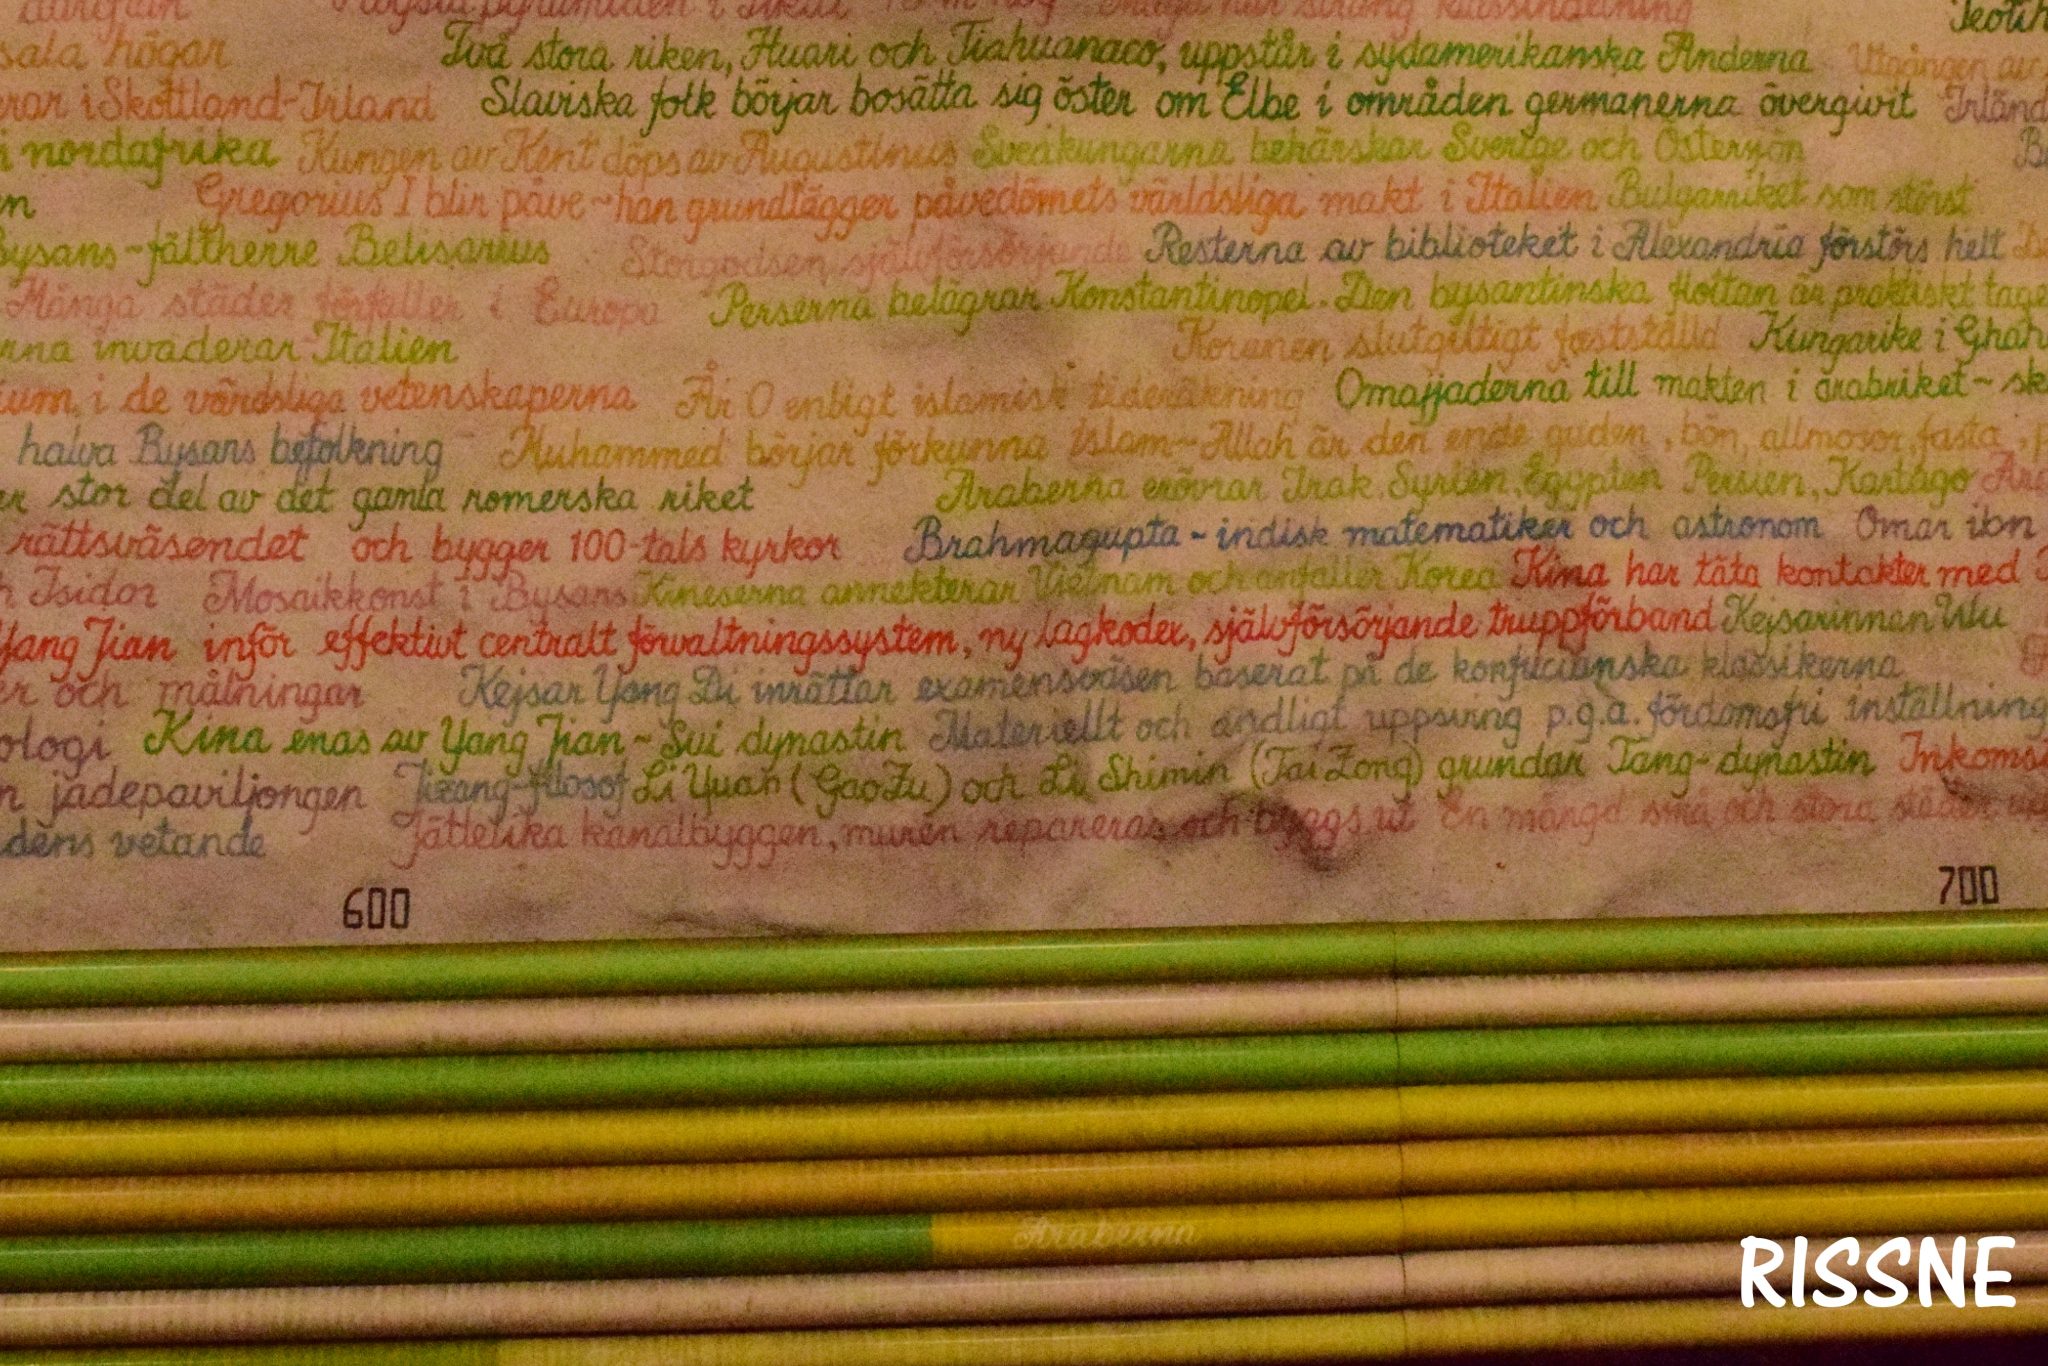 i Tikal
Två stora riken, Huari och Tiahuanaco, uppstår i sydamerikanska Anderna Utgången av
sala högar
i Skottland-Irland Slaviska folk börjar bosätta sig öster om Elbe i områden germanerna övergivit
nordafrika Kungen av Kent döps av Augustinus Sveakungarna behärskar Sverige och Östersjön
Gregorius I blir påve ~ han grundlägger påvedömets världsliga makt i Italien Bulgarriket som störst
Bysans ~ fältherre Belisarius Storgodsen självförsörjande Resterna av biblioteket i Alexandria förstörs helt
Många städer förfaller i Europa Perserna belägrar Konstantinopel. Den bysantinska flottan är praktiskt
invaderar Italien Koranen slutgiltigt fastställd Kungarike i
i de världsliga vetenskaperna År 0 enligt islamisk tideräkning Omajjaderna till makten i arabriket ~
halva Bysans befolkning Muhammed börjar förkunna Islam ~ Allah är den ende guden, bön, allmosor, fasta,
stor del av det gamla romerska riket Araberna erövrar Irak, Syrien, Egypten Persien, Kartago
rättsväsendet och bygger 100-tals kyrkor Brahmagupta ~ indisk matematiker och astronom Omar ibn
Isidor Mosaikkonst i Bysans Kineserna annekterar Vietnam och anfaller Korea Kina har täta kontakter med
Yang Jian inför effektivt centralt förvaltningssystem, ny lagkodex, självförsörjande truppförband Kejsarinnan Wu
och målningar Kejsar Yang Di inrättar examensväsen baserat på de konfucianska klassikerna
Kina enas av Yang Jian ~ Sui dynastin Materiellt och andligt uppsving p.g.a. fördomsfri inställning
jadepaviljongen Jizang-filosof Li Yuan (Gao Zu) och Li Shimin (Tai Zong) grundar Tang-dynastin
vetande Jättelika kanalbyggen, muren repareras och byggs ut En mängd små och stora städer
600 700
Araberna
RISSNE